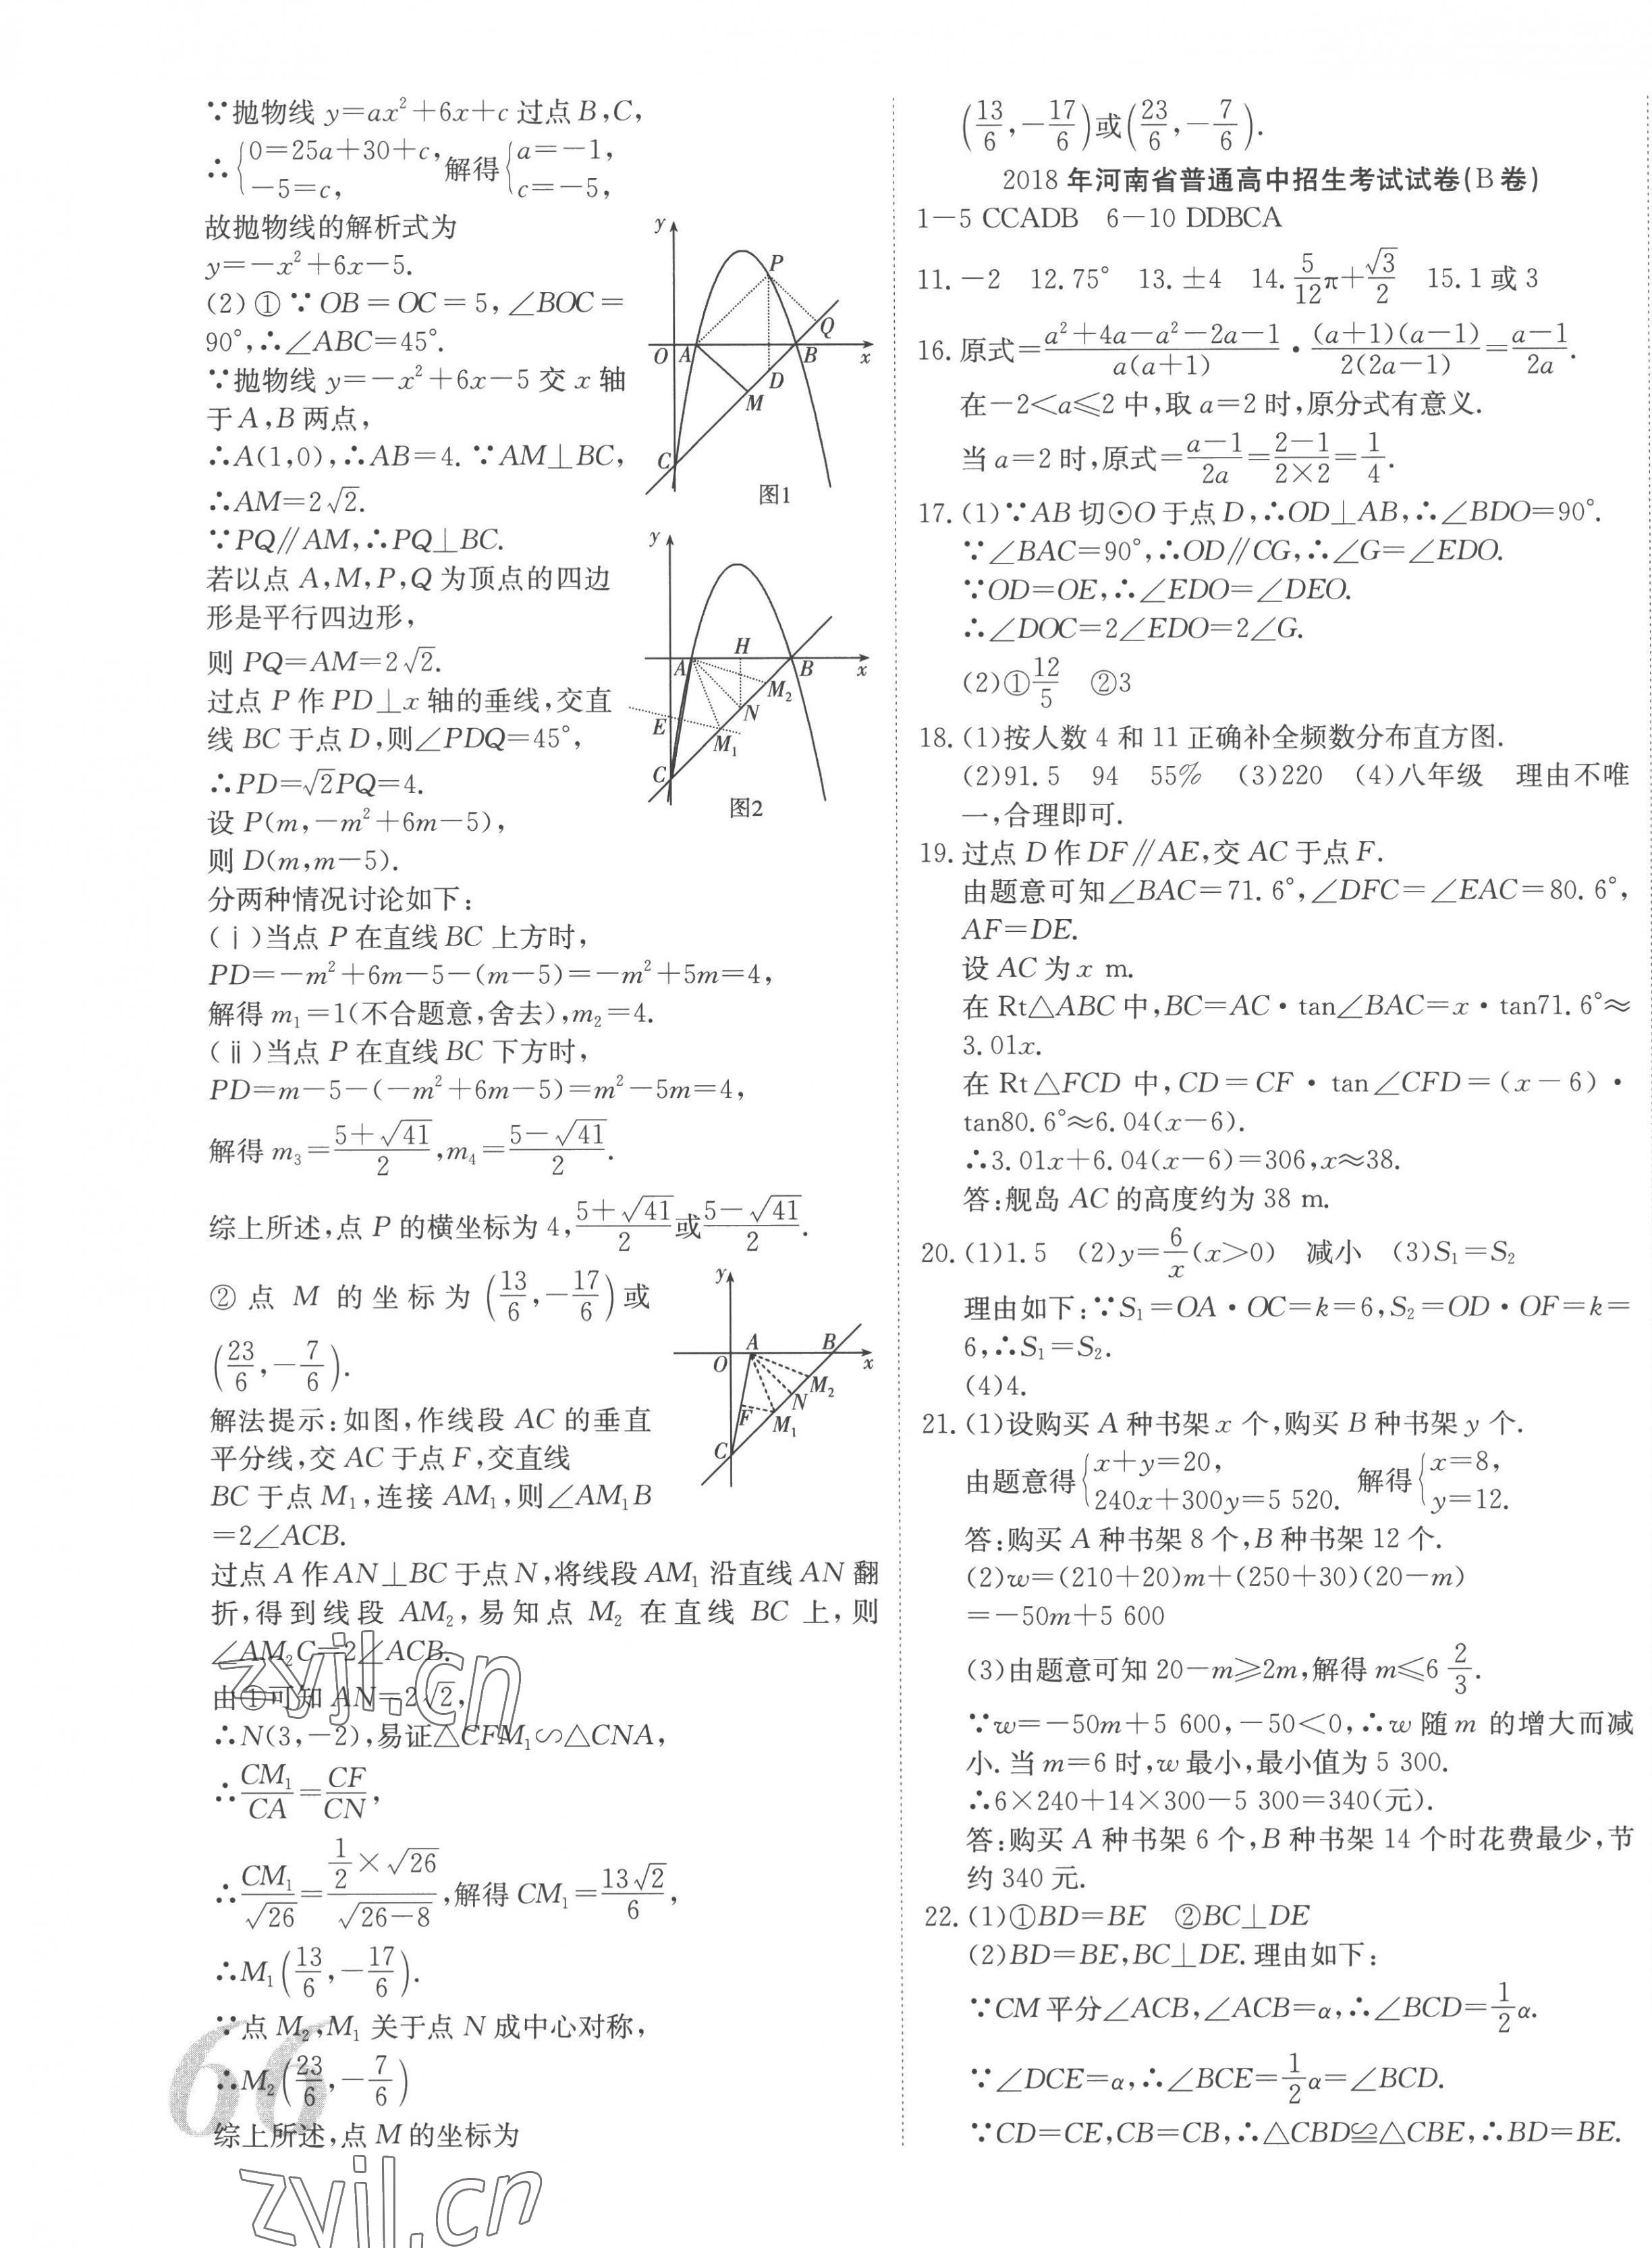 ∵抛物线 y=ax²+6x+c 过点 B,C,
∴{0=25a+30+c, -5=c, 解得{a=-1, c=-5,
故抛物线的解析式为
y=-x²+6x-5.
(2)①∵OB=OC=5,∠BOC=
90°,∴∠ABC=45°.
∵抛物线 y=-x²+6x-5 交 x 轴
于 A,B 两点,
∴A(1,0),∴AB=4.∵AM⊥BC,
∴AM=2√2.
∵PQ∥AM,∴PQ⊥BC.
若以点 A,M,P,Q 为顶点的四边
形是平行四边形,
则 PQ=AM=2√2.
过点 P 作 PD⊥x 轴的垂线,交直
线 BC 于点 D,则∠PDQ=45°,
∴PD=√2PQ=4.
设 P(m,-m²+6m-5),
则 D(m,m-5).
分两种情况讨论如下:
(ⅰ)当点 P 在直线 BC 上方时,
PD=-m²+6m-5-(m-5)=-m²+5m=4,
解得 m₁=1(不合题意,舍去),m₂=4.
(ⅱ)当点 P 在直线 BC 下方时,
PD=m-5-(-m²+6m-5)=m²-5m=4,
解得 m₃=(5+√41)/2,m₄=(5-√41)/2.
综上所述,点 P 的横坐标为 4,(5+√41)/2或(5-√41)/2.
② 点 M 的坐标为 (13/6,-17/6)或
(23/6,-7/6).
解法提示:如图,作线段 AC 的垂直
平分线,交 AC 于点 F,交直线
BC 于点 M₁,连接 AM₁,则∠AM₁B
=2∠ACB.
过点 A 作 AN⊥BC 于点 N,将线段 AM₁ 沿直线 AN 翻
折,得到线段 AM₂,易知点 M₂ 在直线 BC 上,则
∠AM₂C=2∠ACB.
由①可知 AN=2√2,
∴N(3,-2),易证△CFM₁∽△CNA,
∴CM₁/CA=CF/CN,
∴CM₁/√26=(1/2×√26)/√(26-8),解得 CM₁=13√2/6,
∴M₁(13/6,-17/6).
∵点 M₂,M₁ 关于点 N 成中心对称,
∴M₂(23/6,-7/6)
综上所述,点 M 的坐标为
y
P
Q
O A B x
D
M
C
图1
y
H
A B x
M₂
N
E
M₁
C
图2
y
A B
O x
M₂
N
F
M₁
C
66
zyjl.cn
zyjl.cn
(13/6,-17/6)或(23/6,-7/6).
2018 年河南省普通高中招生考试试卷(B 卷)
1-5 CCADB 6-10 DDBCA
11.-2 12.75° 13.±4 14.5/12π+√3/2 15.1 或 3
16.原式=(a²+4a-a²-2a-1)/(a(a+1))·((a+1)(a-1))/(2(2a-1))=(a-1)/2a.
在-2<a≤2 中,取 a=2 时,原分式有意义.
当 a=2 时,原式=(a-1)/2a=(2-1)/(2×2)=1/4.
17.(1)∵AB 切⊙O 于点 D,∴OD⊥AB,∴∠BDO=90°.
∵∠BAC=90°,∴OD∥CG,∴∠G=∠EDO.
∵OD=OE,∴∠EDO=∠DEO.
∴∠DOC=2∠EDO=2∠G.
(2)①12/5 ②3
18.(1)按人数 4 和 11 正确补全频数分布直方图.
(2)91.5 94 55% (3)220 (4)八年级 理由不唯
一,合理即可.
19.过点 D 作 DF∥AE,交 AC 于点 F.
由题意可知∠BAC=71.6°,∠DFC=∠EAC=80.6°,
AF=DE.
设 AC 为 x m.
在 Rt△ABC 中,BC=AC·tan∠BAC=x·tan71.6°≈
3.01x.
在 Rt△FCD 中,CD=CF·tan∠CFD=(x-6)·
tan80.6°≈6.04(x-6).
∴3.01x+6.04(x-6)=306,x≈38.
答:舰岛 AC 的高度约为 38 m.
20.(1)1.5 (2)y=6/x(x>0) 减小 (3)S₁=S₂
理由如下:∵S₁=OA·OC=k=6,S₂=OD·OF=k=
6,∴S₁=S₂.
(4)4.
21.(1)设购买 A 种书架 x 个,购买 B 种书架 y 个.
由题意得{x+y=20, 240x+300y=5 520. 解得{x=8, y=12.
答:购买 A 种书架 8 个,B 种书架 12 个.
(2)w=(210+20)m+(250+30)(20-m)
=-50m+5 600
(3)由题意可知 20-m≥2m,解得 m≤6 2/3.
∵w=-50m+5 600,-50<0,∴w 随 m 的增大而减
小.当 m=6 时,w 最小,最小值为 5 300.
∴6×240+14×300-5 300=340(元).
答:购买 A 种书架 6 个,B 种书架 14 个时花费最少,节
约 340 元.
22.(1)①BD=BE ②BC⊥DE
(2)BD=BE,BC⊥DE.理由如下:
∵CM 平分∠ACB,∠ACB=α,∴∠BCD=1/2α.
∵∠DCE=α,∴∠BCE=1/2α=∠BCD.
∵CD=CE,CB=CB,∴△CBD≌△CBE,∴BD=BE.